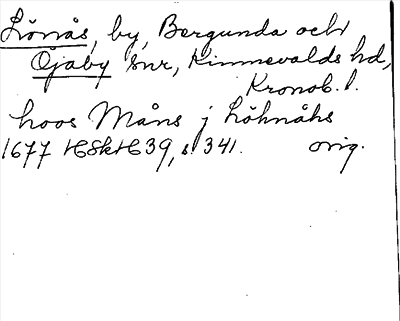 Lönås, by, Bergunda och
Öjaby snr, Kinnevalds hd,
Kronob. l.
hoos Måns j Löhnåhs
1677 HSkH 39, s. 341. orig.